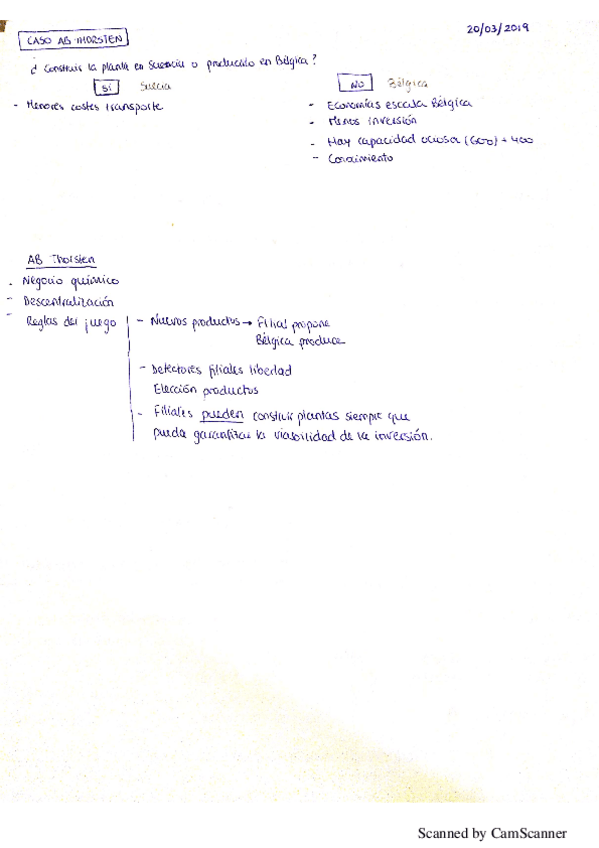 20/03/2019
CASO AB THORSTEN
¿ Construir la planta en Suecia o producirlo en Bélgica ?
SÍ Suecia
- Menores costes transporte
NO Bélgica
- Economías escala Bélgica
- Menos inversión
- Hay capacidad ociosa (600) + 400
- Conocimiento
AB Thorsten
- Negocio químico
- Descentralización
- Reglas del juego
- Nuevos productos → Filial propone
Bélgica produce
- Detectores filiales libertad
Elección productos
- Filiales pueden construir plantas siempre que
pueda garantizar la viabilidad de la inversión.
Scanned by CamScanner